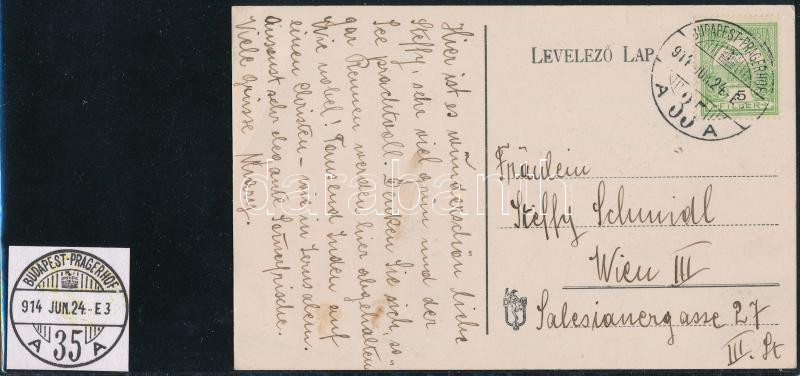 Hier ist es wunderschön liebe
Steffy, sehr viel grün und der
See prachtvoll. Denken Sie sich, so-
gar Rennen werden hier abgehalten
Wie nobel! Tausend Juden auf
einen Christen - wie in Jerusalem.
Ansonst sehr
Viele Grüsse
LEVELEZŐ LAP
BUDAPEST-PRAGERHOF
914 JUN.24
A 35 A
5
FILLER
Fräulein
Steffy Schmidl
Wien III
Salesianergasse 27
III. St
BUDAPEST-PRAGERHOF
914 JUN.24.-E3
A 35 A
darabanth